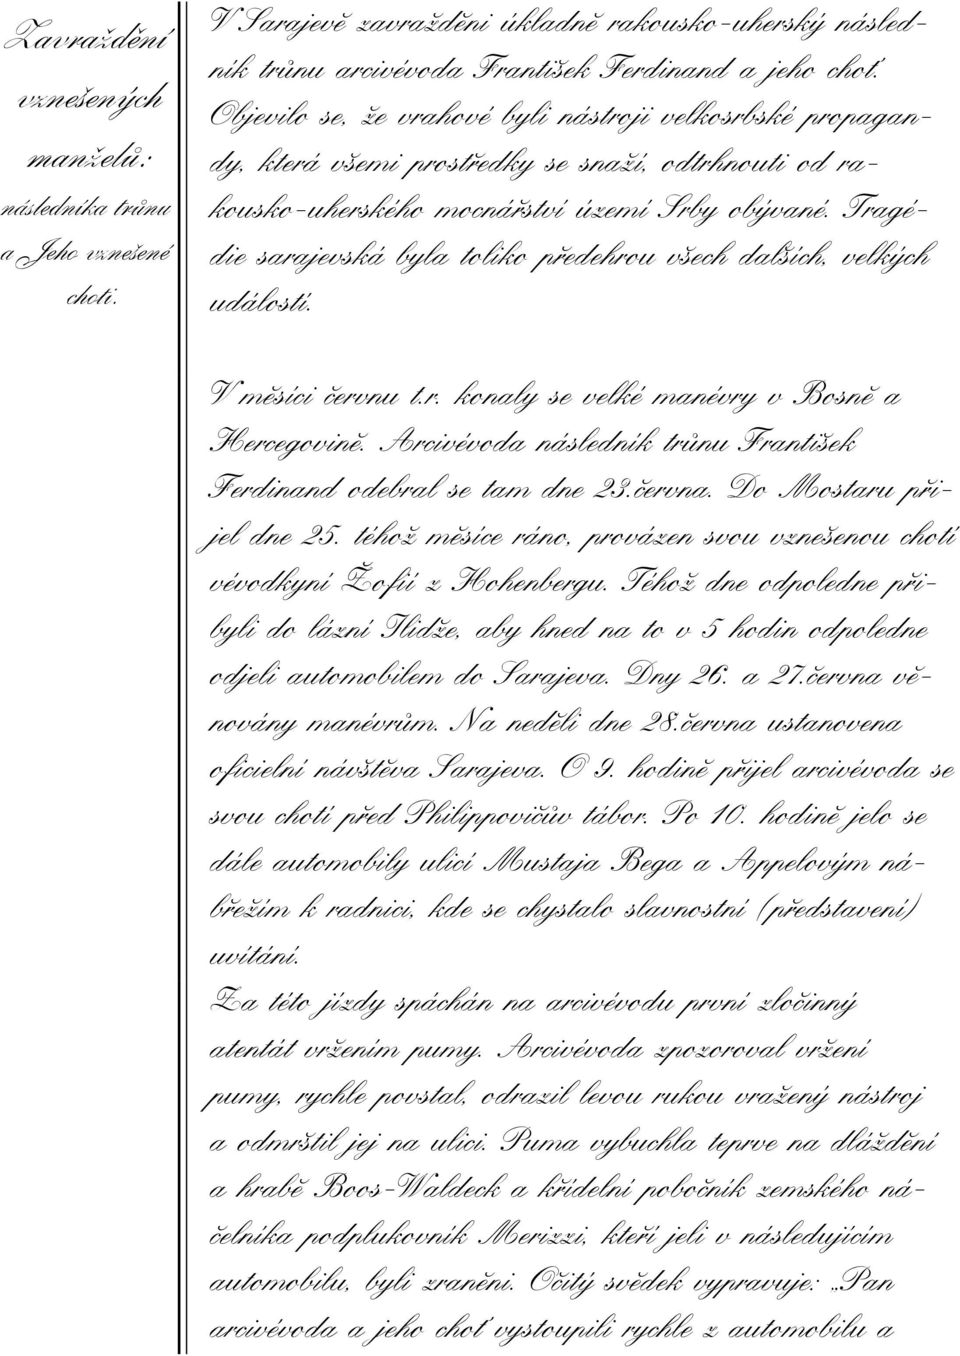 Zavraždění
vznešených
manželů:
následníka trůnu
a Jeho vznešené
choti.
V Sarajevě zavražděni úkladně rakousko-uherský násled-
ník trůnu arcivévoda František Ferdinand a jeho choť.
Objevilo se, že vrahové byli nástroji velkosrbské propagan-
dy, která všemi prostředky se snaží, odtrhnouti od ra-
kousko-uherského mocnářství území Srby obývané. Tragé-
die sarajevská byla toliko předehrou všech dalších, velkých
událostí.
V měsíci červnu t.r. konaly se velké manévry v Bosně a
Hercegovině. Arcivévoda následník trůnu František
Ferdinand odebral se tam dne 23.června. Do Mostaru při-
jel dne 25. téhož měsíce ráno, provázen svou vznešenou chotí
vévodkyní Žofií z Hohenbergu. Téhož dne odpoledne při-
byli do lázní Ilidže, aby hned na to v 5 hodin odpoledne
odjeli automobilem do Sarajeva. Dny 26. a 27.června vě-
novány manévrům. Na neděli dne 28.června ustanovena
oficielní návštěva Sarajeva. O 9. hodině přijel arcivévoda se
svou chotí před Philippovičův tábor. Po 10. hodině jelo se
dále automobily ulicí Mustaja Bega a Appelovým ná-
břežím k radnici, kde se chystalo slavnostní (představení)
uvítání.
Za této jízdy spáchán na arcivévodu první zločinný
atentát vržením pumy. Arcivévoda zpozoroval vržení
pumy, rychle povstal, odrazil levou rukou vražený nástroj
a odmrštil jej na ulici. Puma vybuchla teprve na dláždění
a hrabě Boos-Waldeck a křídelní pobočník zemského ná-
čelníka podplukovník Merizzi, kteří jeli v následujícím
automobilu, byli zraněni. Očitý svědek vypravuje: „Pan
arcivévoda a jeho choť vystoupili rychle z automobilu a